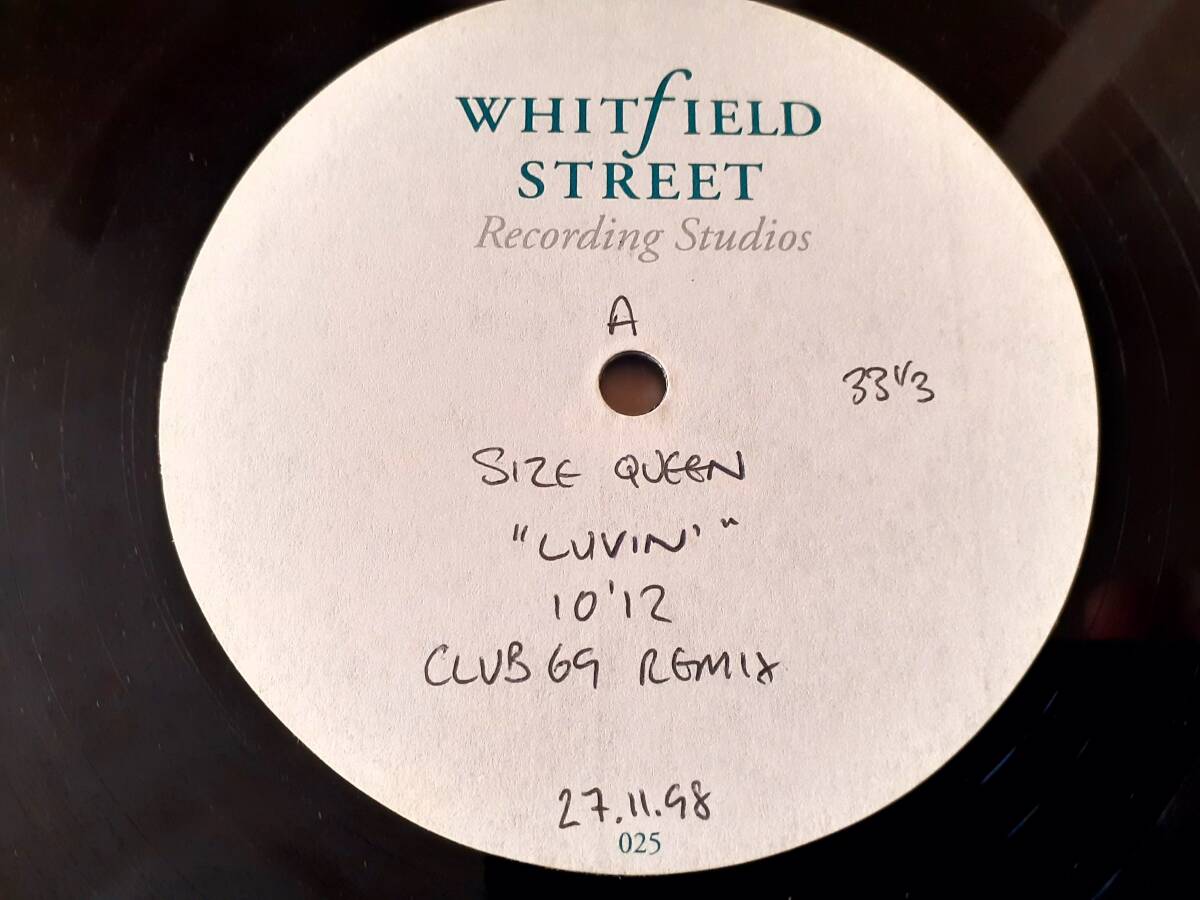 WHITfIELD
STREET
Recording Studios
A
33 1/3
SIZE QUEEN
"LUVIN'"
10'12
CLUB 69 REMIX
27.11.98
025